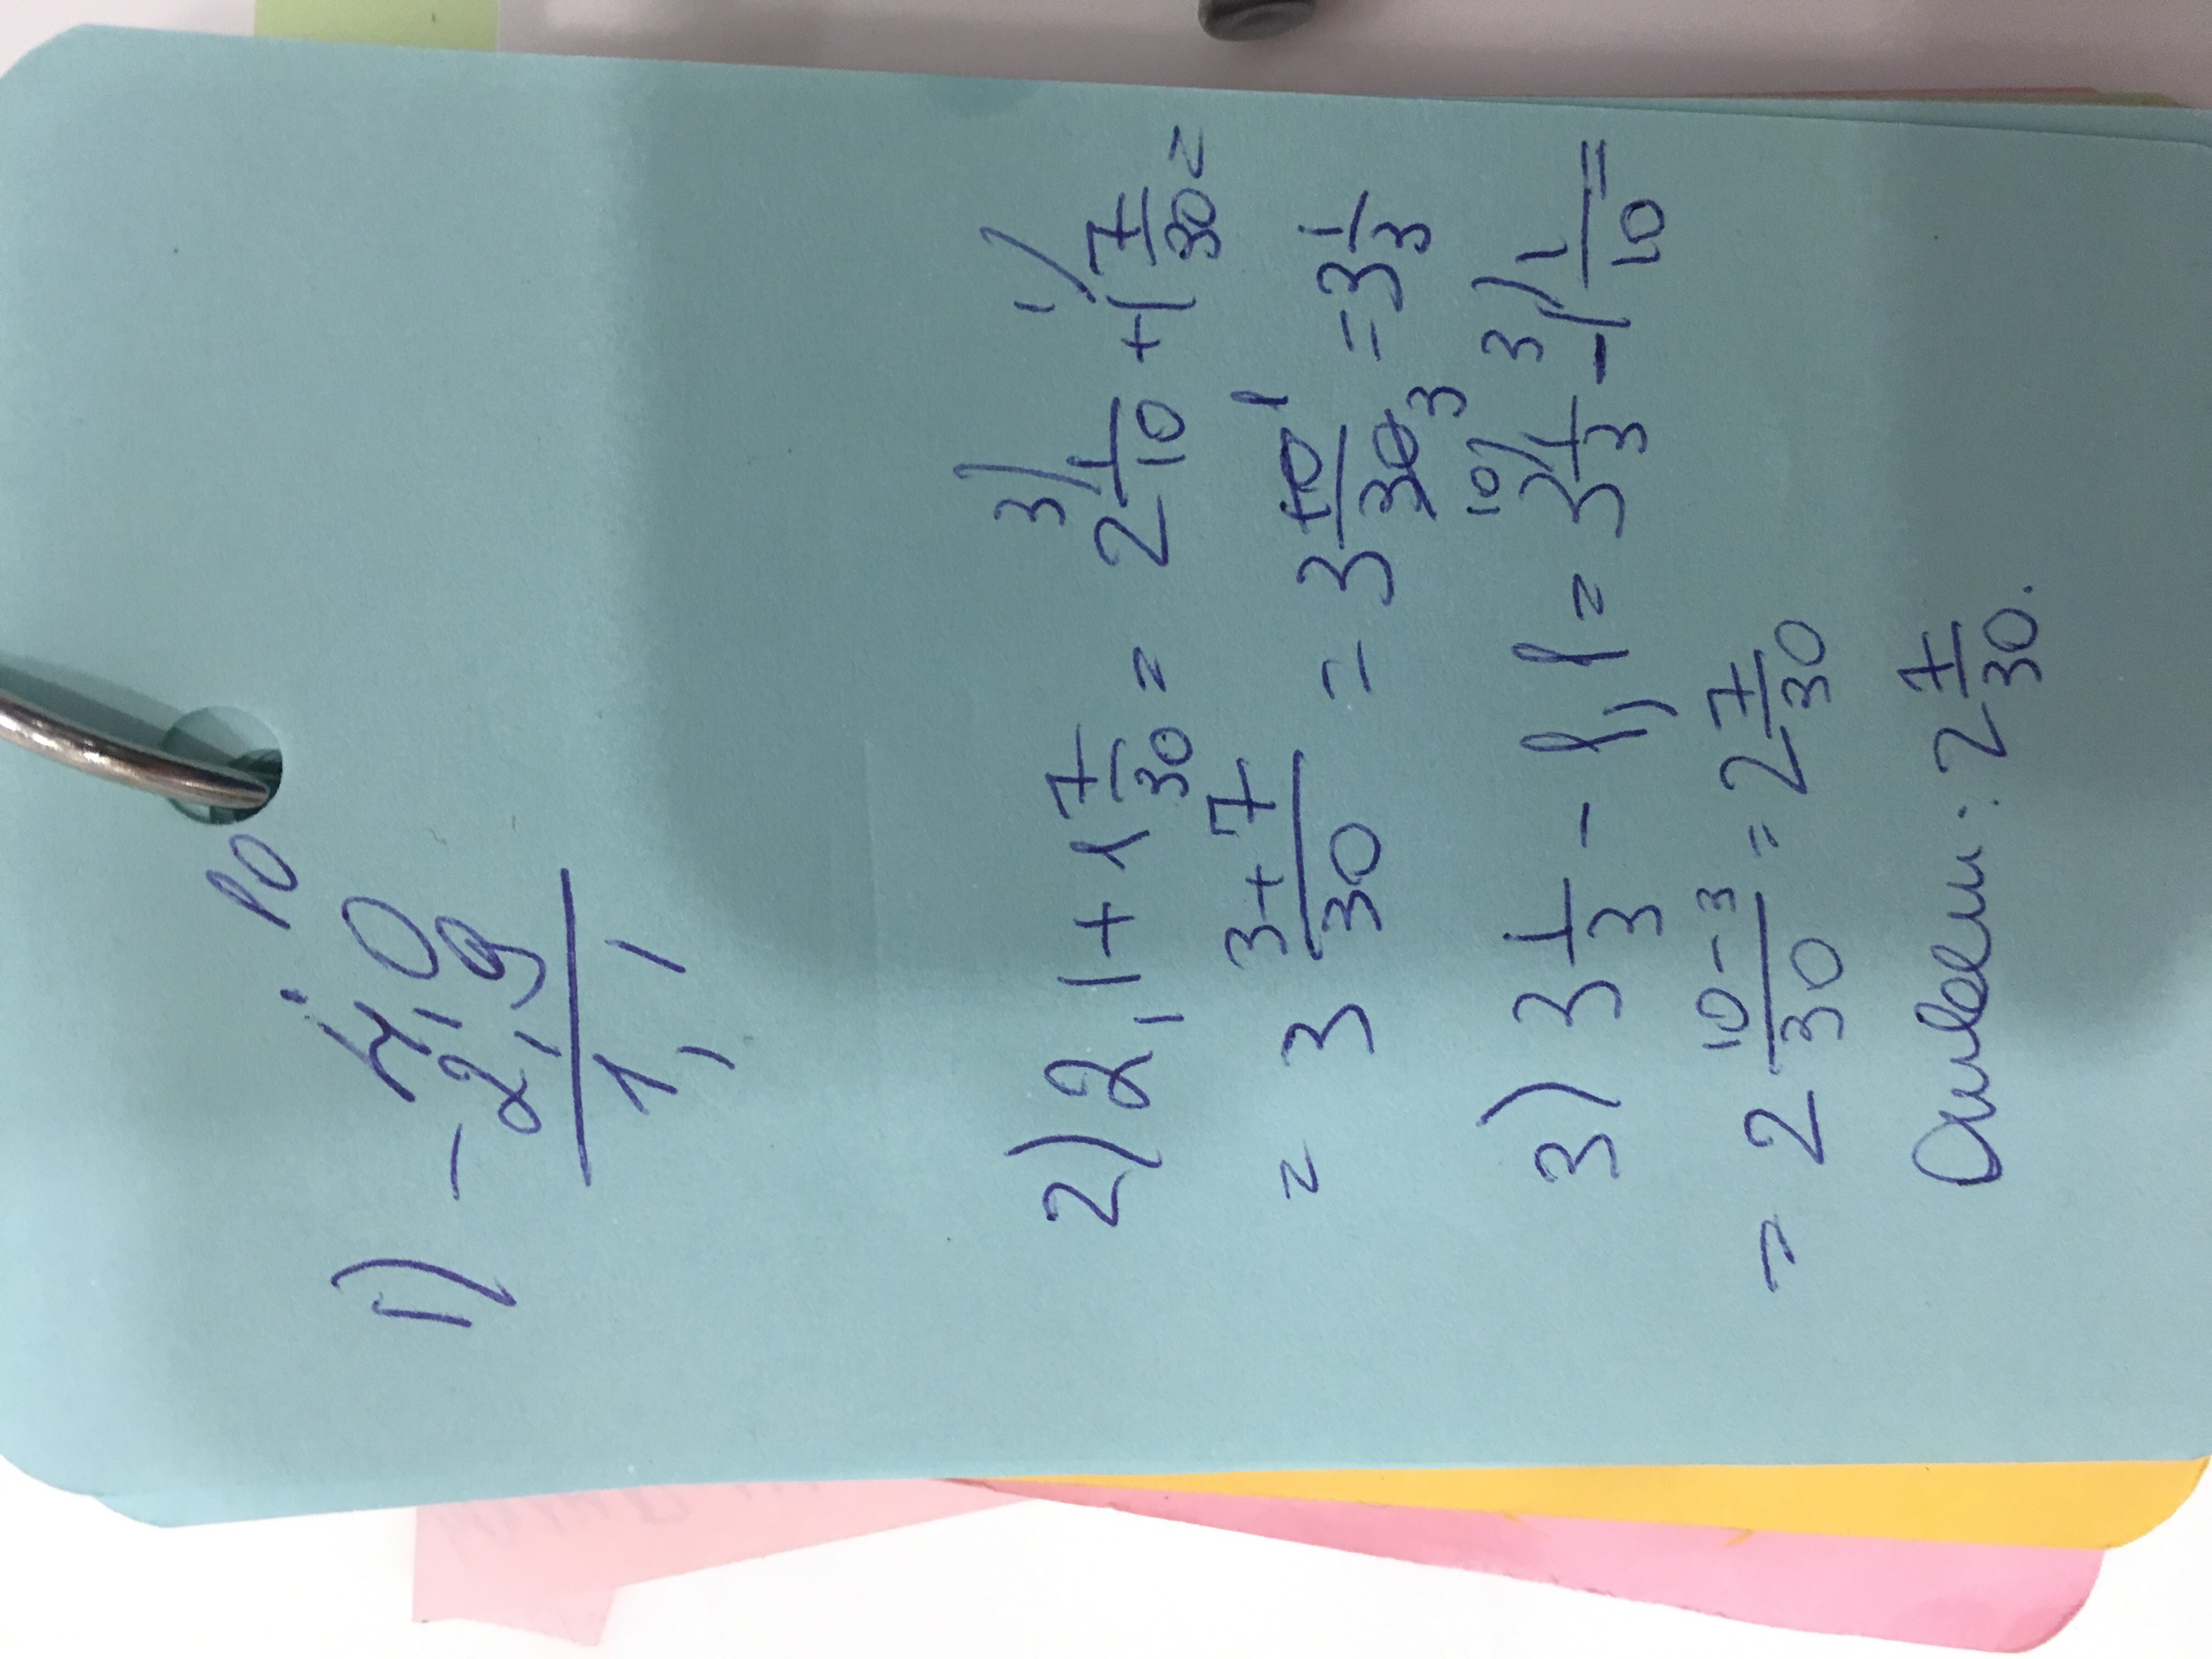 1) 10
- 4,0
2,9
1,1
2) 2,1 + 1 7/30 = 2 1/10 3) + 1 7/30 1) =
= 3 3+7/30 = 3 10/30 1 3 = 3 1/3
3) 3 1/3 - 1,1 = 3 1/3 10) - 1 1/10 3) =
= 2 10-3/30 = 2 7/30
Ответ: 2 7/30.